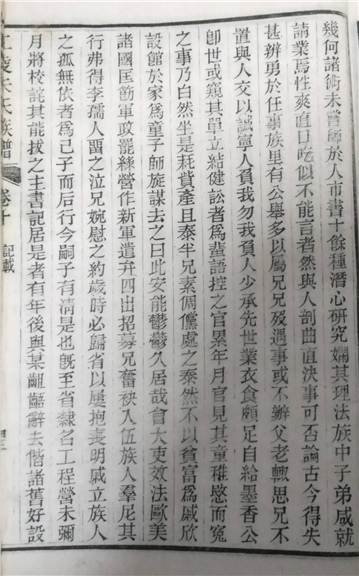 幾何諸術未嘗師於人市書十餘種潛心研究嫻其理法族中子弟咸就
請業焉性爽直口吃似不能言者然與人剖曲直決事可否論古今得失
甚辨勇於任事族里有公舉多以屬兄兄歿遇事或不辦父老輒思兄不
置與人交以誠寧人負我勿我負人少承先世業衣食頗足自給墨香公
卽世或窺其單立結健訟者為蜚語控之官累年月官見其童稚愍而寃
之事乃白然坐是耗貲產且泰半兄素倜儻處之泰然不以貧富為戚欣
設館於家為童子師旋謀去之曰此安能鬱鬱久居哉會大吏效法歐美
諸國匡飭軍政罷綠營作新軍遣弁四出招募兄奮袂入伍族人羣尼其
行弗得李孺人畱之泣兄婉慰之約歲時必歸省以屢抱喪明戚立族人
之孤無依者為己子而后行今嗣子有清是也旣至省隸名工程營未彌
月將校詫其能拔之主書記居是者有年後與某齟齬辭去偕諸舊好設
江陵朱氏族譜 卷十 記載